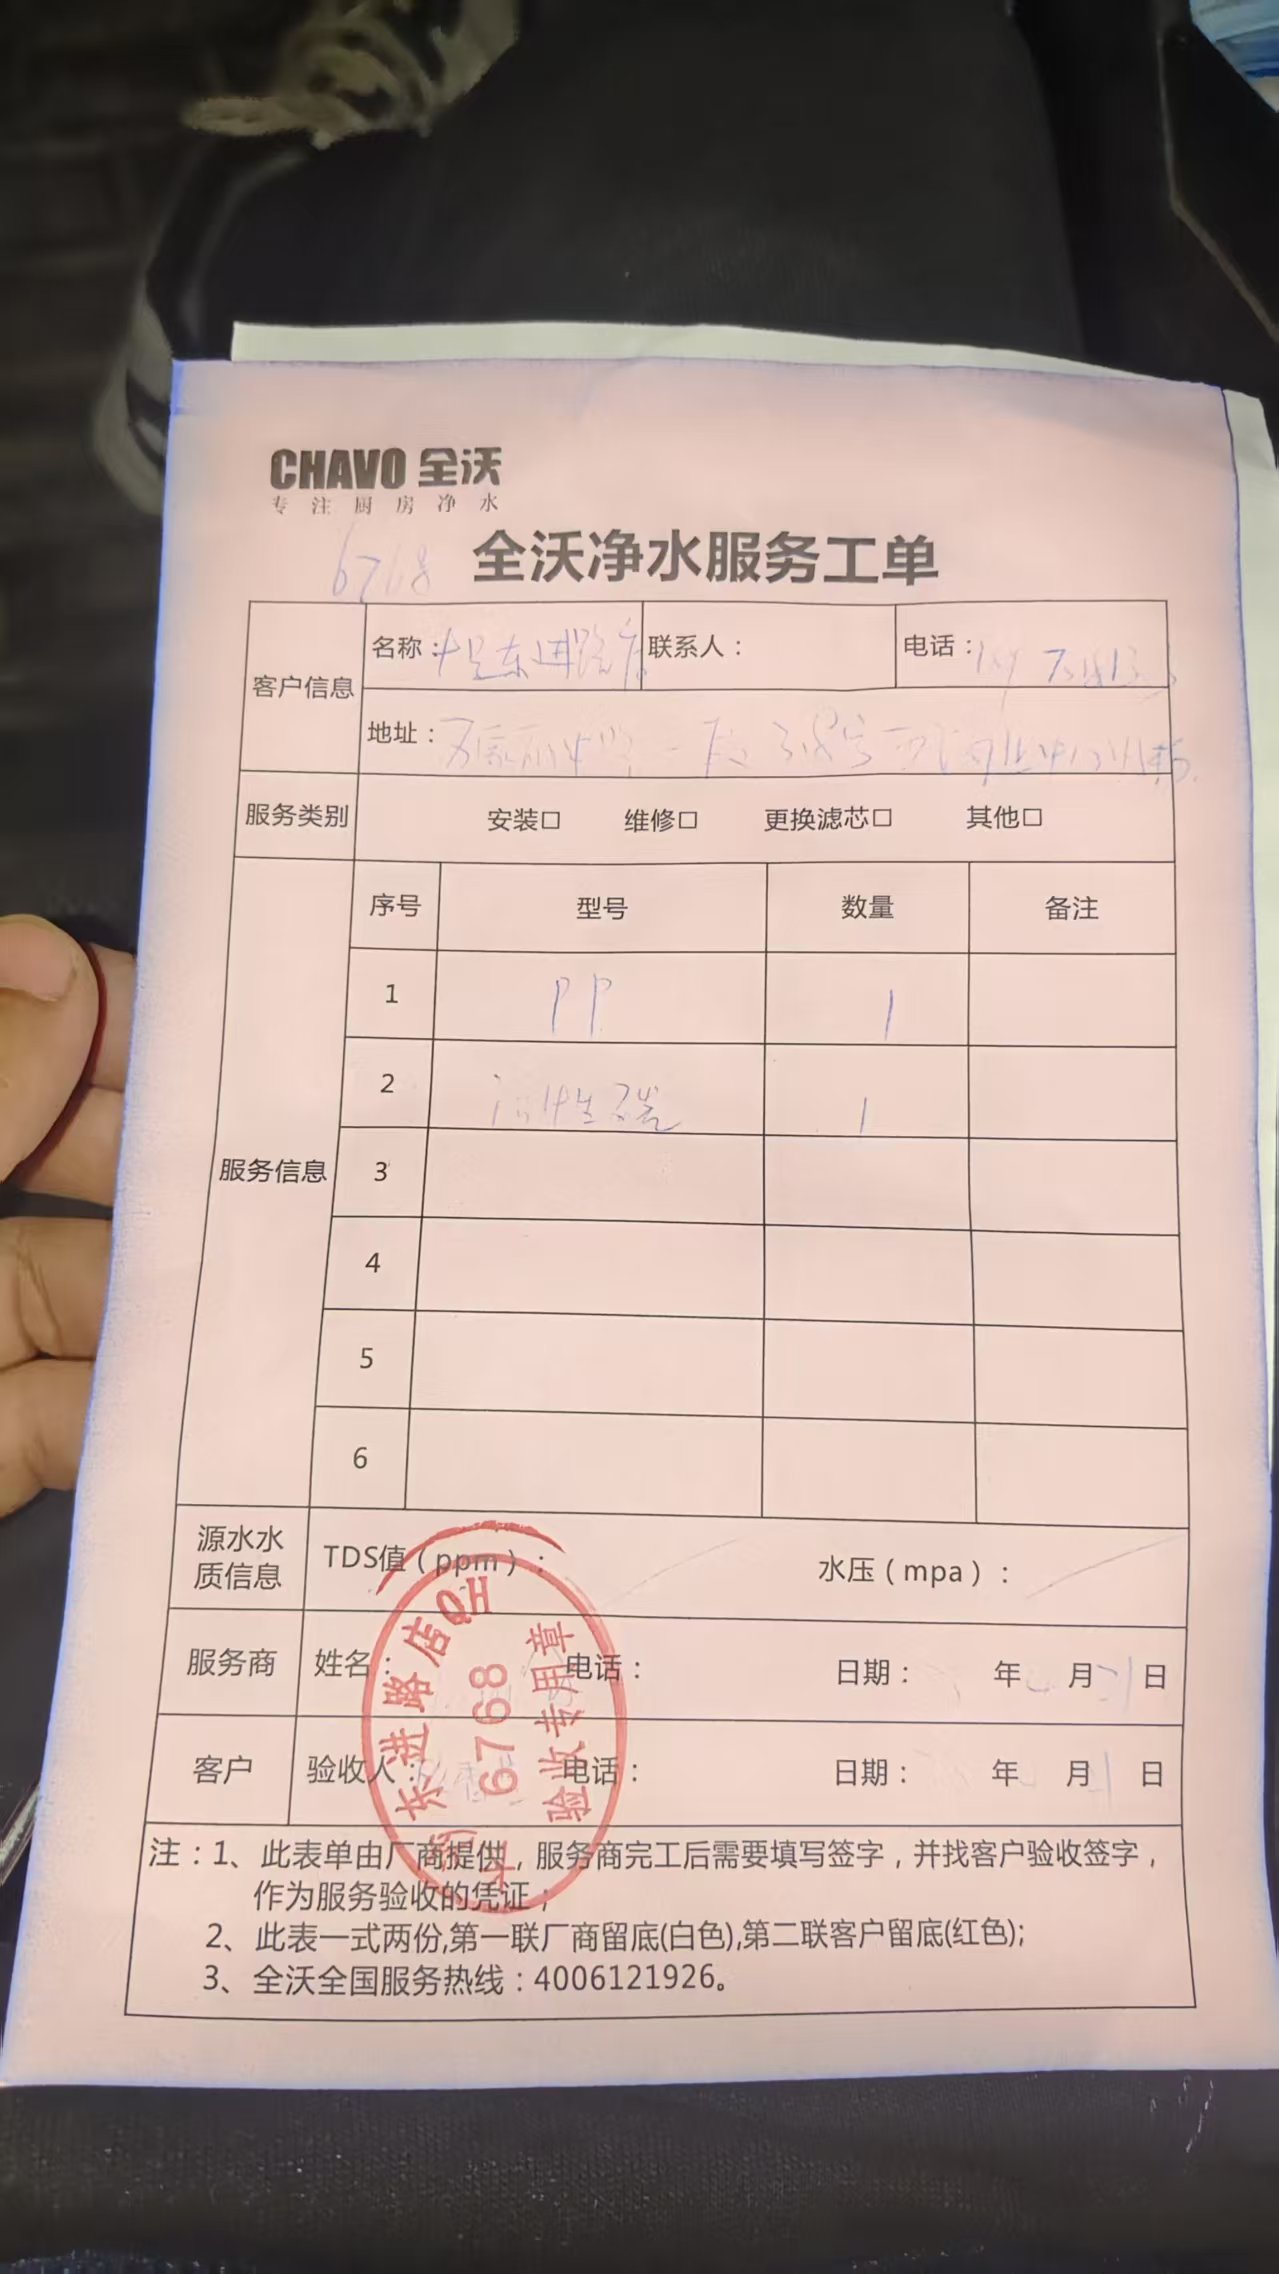 CHAVO 全沃
专注厨房净水
6768 全沃净水服务工单
客户信息 名称：东进路店 联系人： 电话：
地址：
服务类别 安装□ 维修□ 更换滤芯□ 其他□
服务信息 序号 型号 数量 备注
1 PP 1
2 活性炭 1
3
4
5
6
源水水质信息 TDS值（ppm）： 水压（mpa）：
服务商 姓名： 电话： 日期： 年 月 21 日
客户 验收人： 电话： 日期： 年 月 日
东进路店QH
6768
验收专用章
注：1、此表单由厂商提供，服务商完工后需要填写签字，并找客户验收签字，
作为服务验收的凭证；
2、此表一式两份,第一联厂商留底(白色),第二联客户留底(红色);
3、全沃全国服务热线：4006121926。